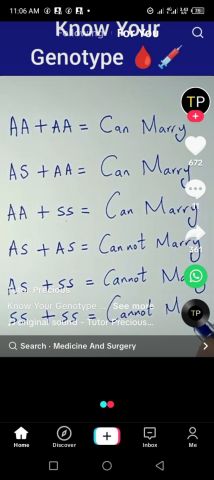 11:06 AM
Following For You
Know Your
Genotype
TP
AA + AA = Can Marry
AS + AA = Can Marry
672
AA + SS = Can Marry
AS + AS = Cannot Marry
361
AS + SS = Cannot Ma
Precious
Know Your Genotype ... See more
SS + SS = Cannot M
original sound - Tutor Precious...
TP
Search · Medicine And Surgery
Home Discover Inbox Me